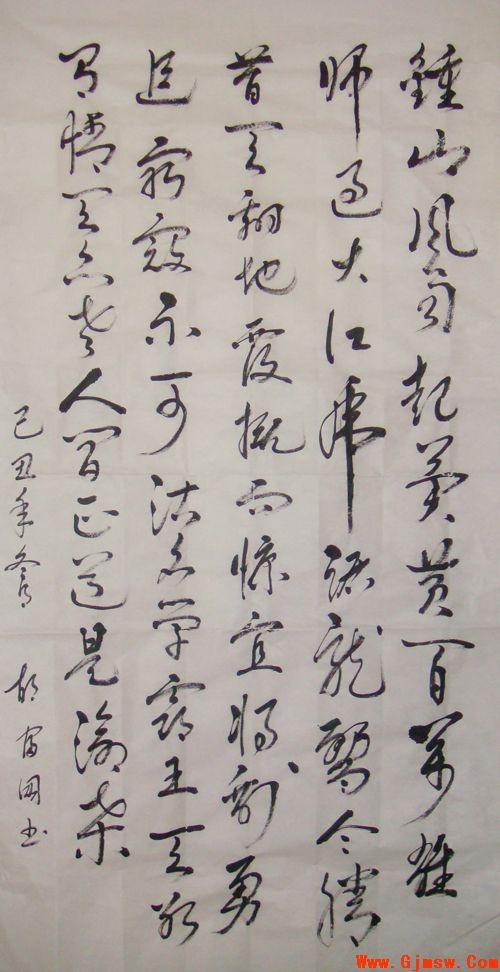 鍾山风雨起蒼黄百萬雄
师过大江虎踞龍盤今勝
昔天翻地覆慨而慷宜将剩勇
追窮寇不可沽名学霸王天若
有情天亦老人间正道是滄桑
己丑年冬月 胡富国书
Www.Gjmsw.Com